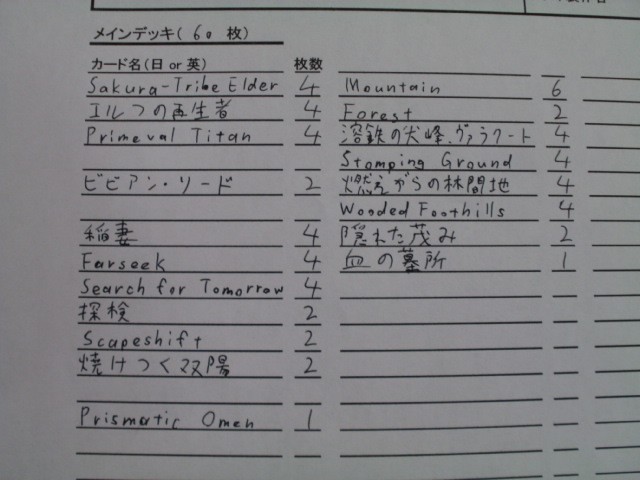 メインデッキ( 60 枚)
カード名(日 or 英) 枚数
Sakura-Tribe Elder 4
エルフの再生者 4
Primeval Titan 4
ビビアン・リード 2
稲妻 4
Farseek 4
Search for Tomorrow 4
探検 2
Scapeshift 2
焼けつく双陽 2
Prismatic Omen 1
Mountain 6
Forest 2
溶鉄の尖峰、ヴァラクート 4
Stomping Ground 4
燃えがらの林間地 4
Wooded Foothills 4
隠れた茂み 2
血の墓所 1